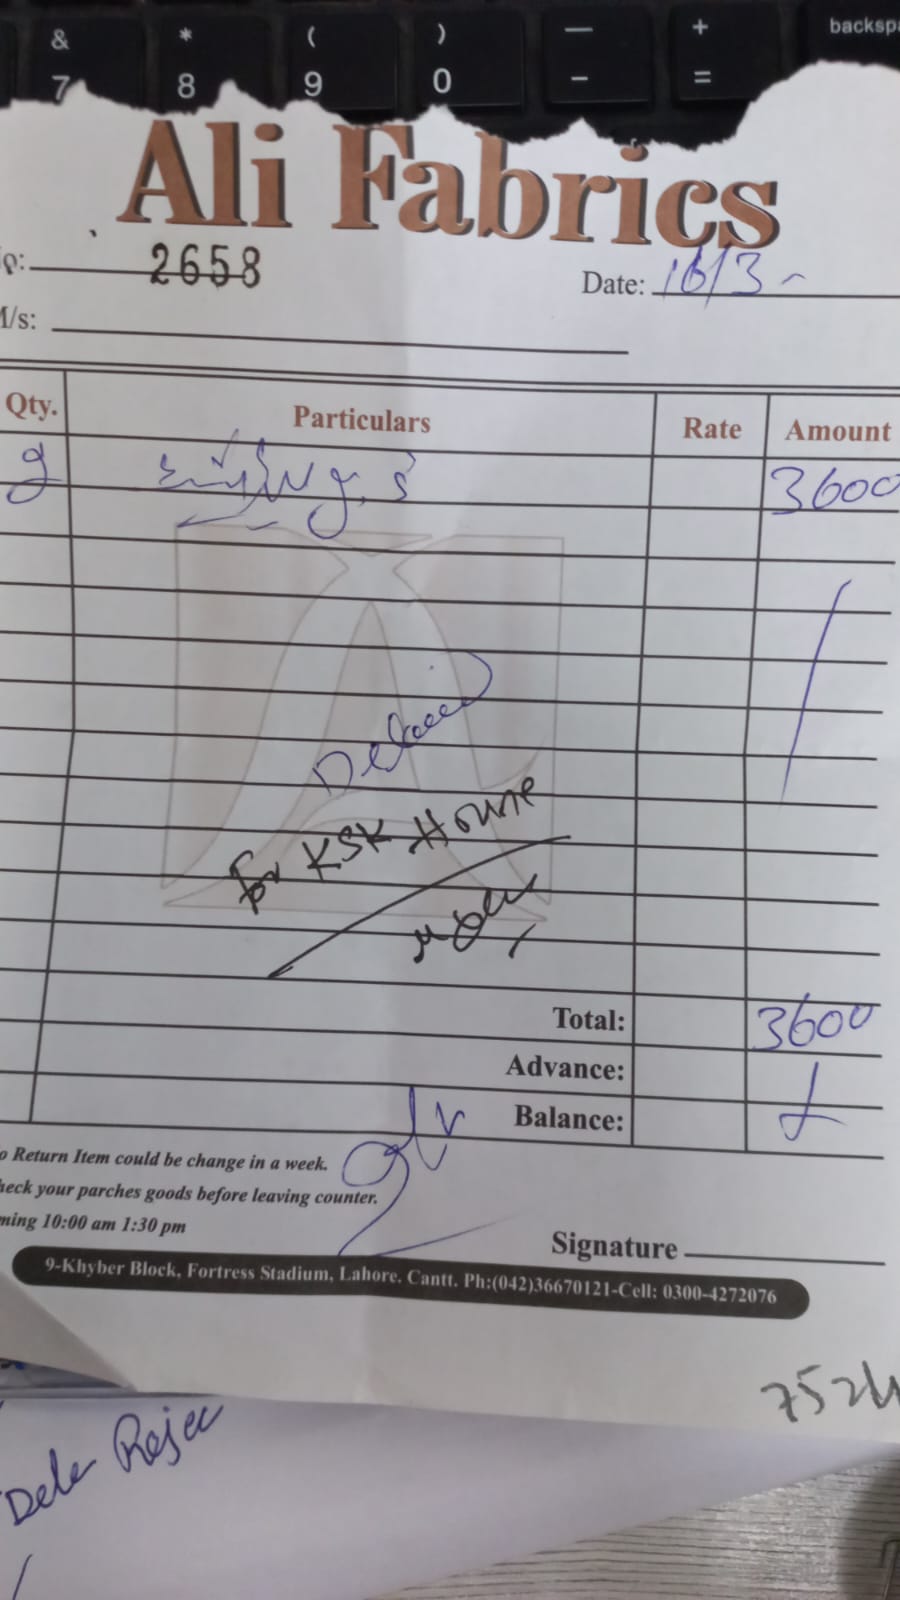 & * ( ) — + backsp
7 8 9 0 - =
Ali Fabrics
2658
Date: 16/3
M/s:
Qty. Particulars Rate Amount
2 3600
For KSK House
Total: 3600
Advance:
Balance:
o Return Item could be change in a week.
heck your parches goods before leaving counter.
ming 10:00 am 1:30 pm
Signature
9-Khyber Block, Fortress Stadium, Lahore. Cantt. Ph:(042)36670121-Cell: 0300-4272076